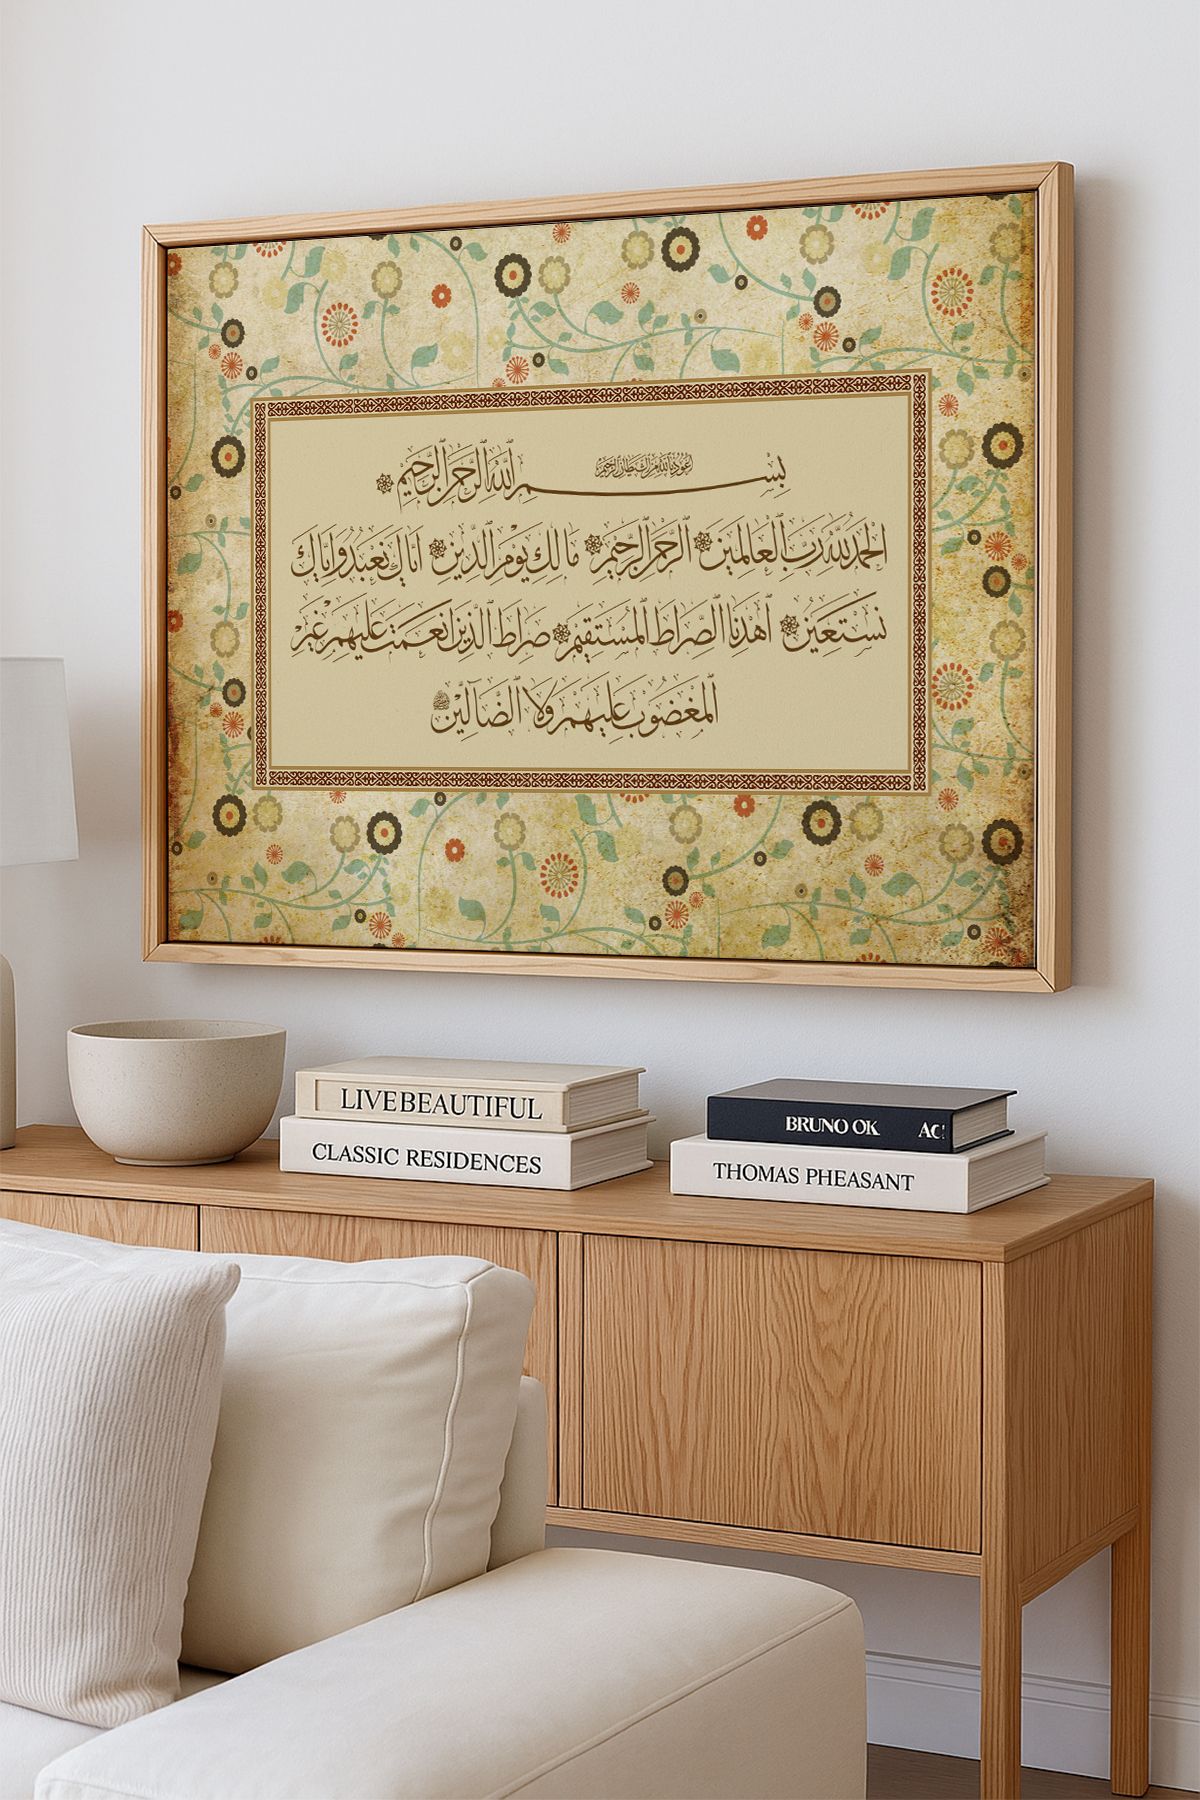 أعوذ بالله من الشيطان الرجيم
بسم الله الرحمن الرحيم
الحمد لله رب العالمين الرحمن الرحيم مالك يوم الدين اياك نعبد واياك
نستعين اهدنا الصراط المستقيم صراط الذين انعمت عليهم غير
المغضوب عليهم ولا الضالين
LIVEBEAUTIFUL
CLASSIC RESIDENCES
BRUNO OK AC
THOMAS PHEASANT